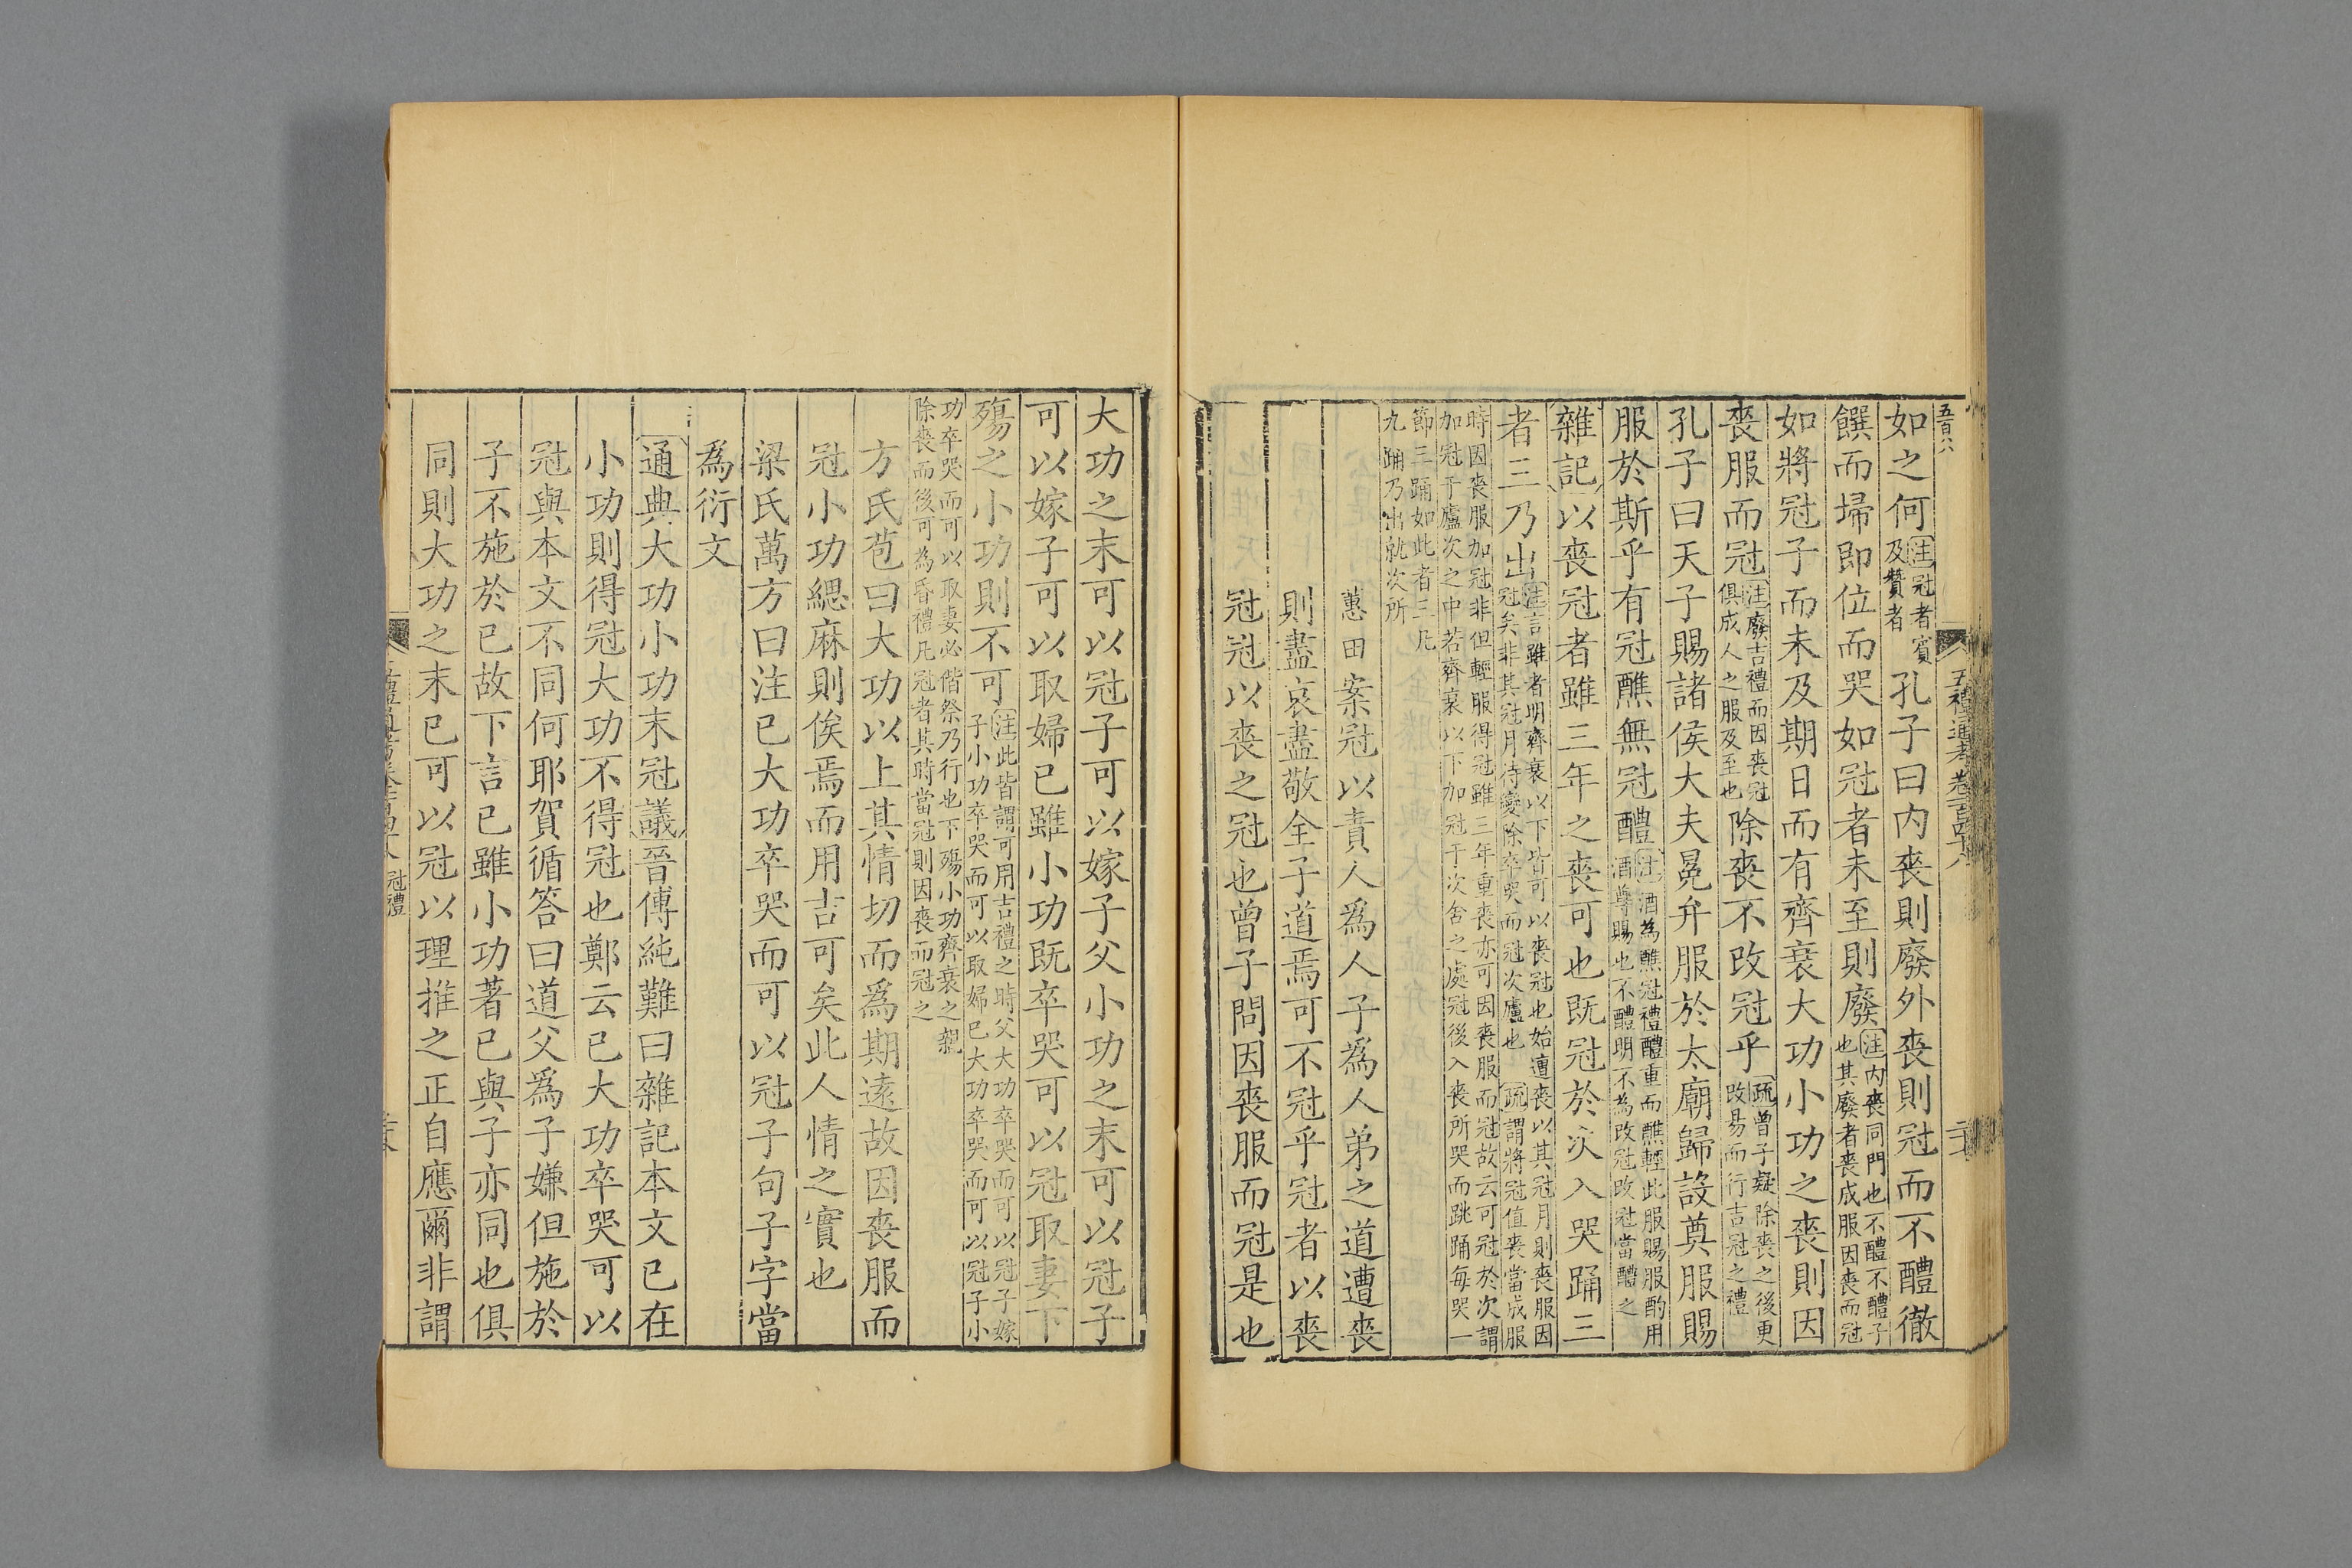 五百八
五禮通考卷一百四十八
二十
如之何注冠者賓及贊者孔子曰内喪則廢外喪則冠而不醴徹
饌而埽即位而哭如冠者未至則廢注内喪同門也不醴不醴子也其廢者喪成服因喪而冠
如將冠子而未及期日而有齊衰大功小功之喪則因
喪服而冠注廢吉禮而因喪冠俱成人之服及至也除喪不改冠乎疏曾子疑除喪之後更改易而行吉冠之禮
孔子曰天子賜諸侯大夫冕弁服於太廟歸設奠服賜
服於斯乎有冠醮無冠醴注酒為醮冠禮醴重而醮輕此服賜服酌用酒尊賜也不醴明不為改冠改冠當醴之
雜記以喪冠者雖三年之喪可也既冠於次入哭踊三
者三乃出注言雖者明齊衰以下皆可以喪冠也始遭喪以其冠月則喪服因冠矣非其冠月待變除卒哭而冠次廬也疏謂將冠值喪當成服
時因喪服加冠非但輕服得冠雖三年重喪亦可因喪服而冠故云可冠於次謂加冠于廬次之中若齊衰以下加冠于次舍之處冠後入喪所哭而跳踊每哭一
節三踊如此者三凡九踊乃出就次所
蕙田案冠以責人為人子為人弟之道遭喪
則盡哀盡敬全子道焉可不冠乎冠者以喪
冠冠以喪之冠也曾子問因喪服而冠是也
大功之末可以冠子可以嫁子父小功之末可以冠子
可以嫁子可以取婦已雖小功既卒哭可以冠取妻下
殤之小功則不可注此皆謂可用吉禮之時父大功卒哭而可以冠子嫁子小功卒哭而可以取婦已大功卒哭而可以冠子小
功卒哭而可以取妻必偕祭乃行也下殤小功齊衰之親除喪而後可為昏禮凡冠者其時當冠則因喪而冠之
方氏苞曰大功以上其情切而為期遠故因喪服而
冠小功緦麻則俟焉而用吉可矣此人情之實也
梁氏萬方曰注已大功卒哭而可以冠子句子字當
為衍文
通典大功小功末冠議晉傅純難曰雜記本文已在
小功則得冠大功不得冠也鄭云已大功卒哭可以
冠與本文不同何耶賀循答曰道父為子嫌但施於
子不施於已故下言已雖小功著已與子亦同也俱
同則大功之末已可以冠以理推之正自應爾非謂
冠禮